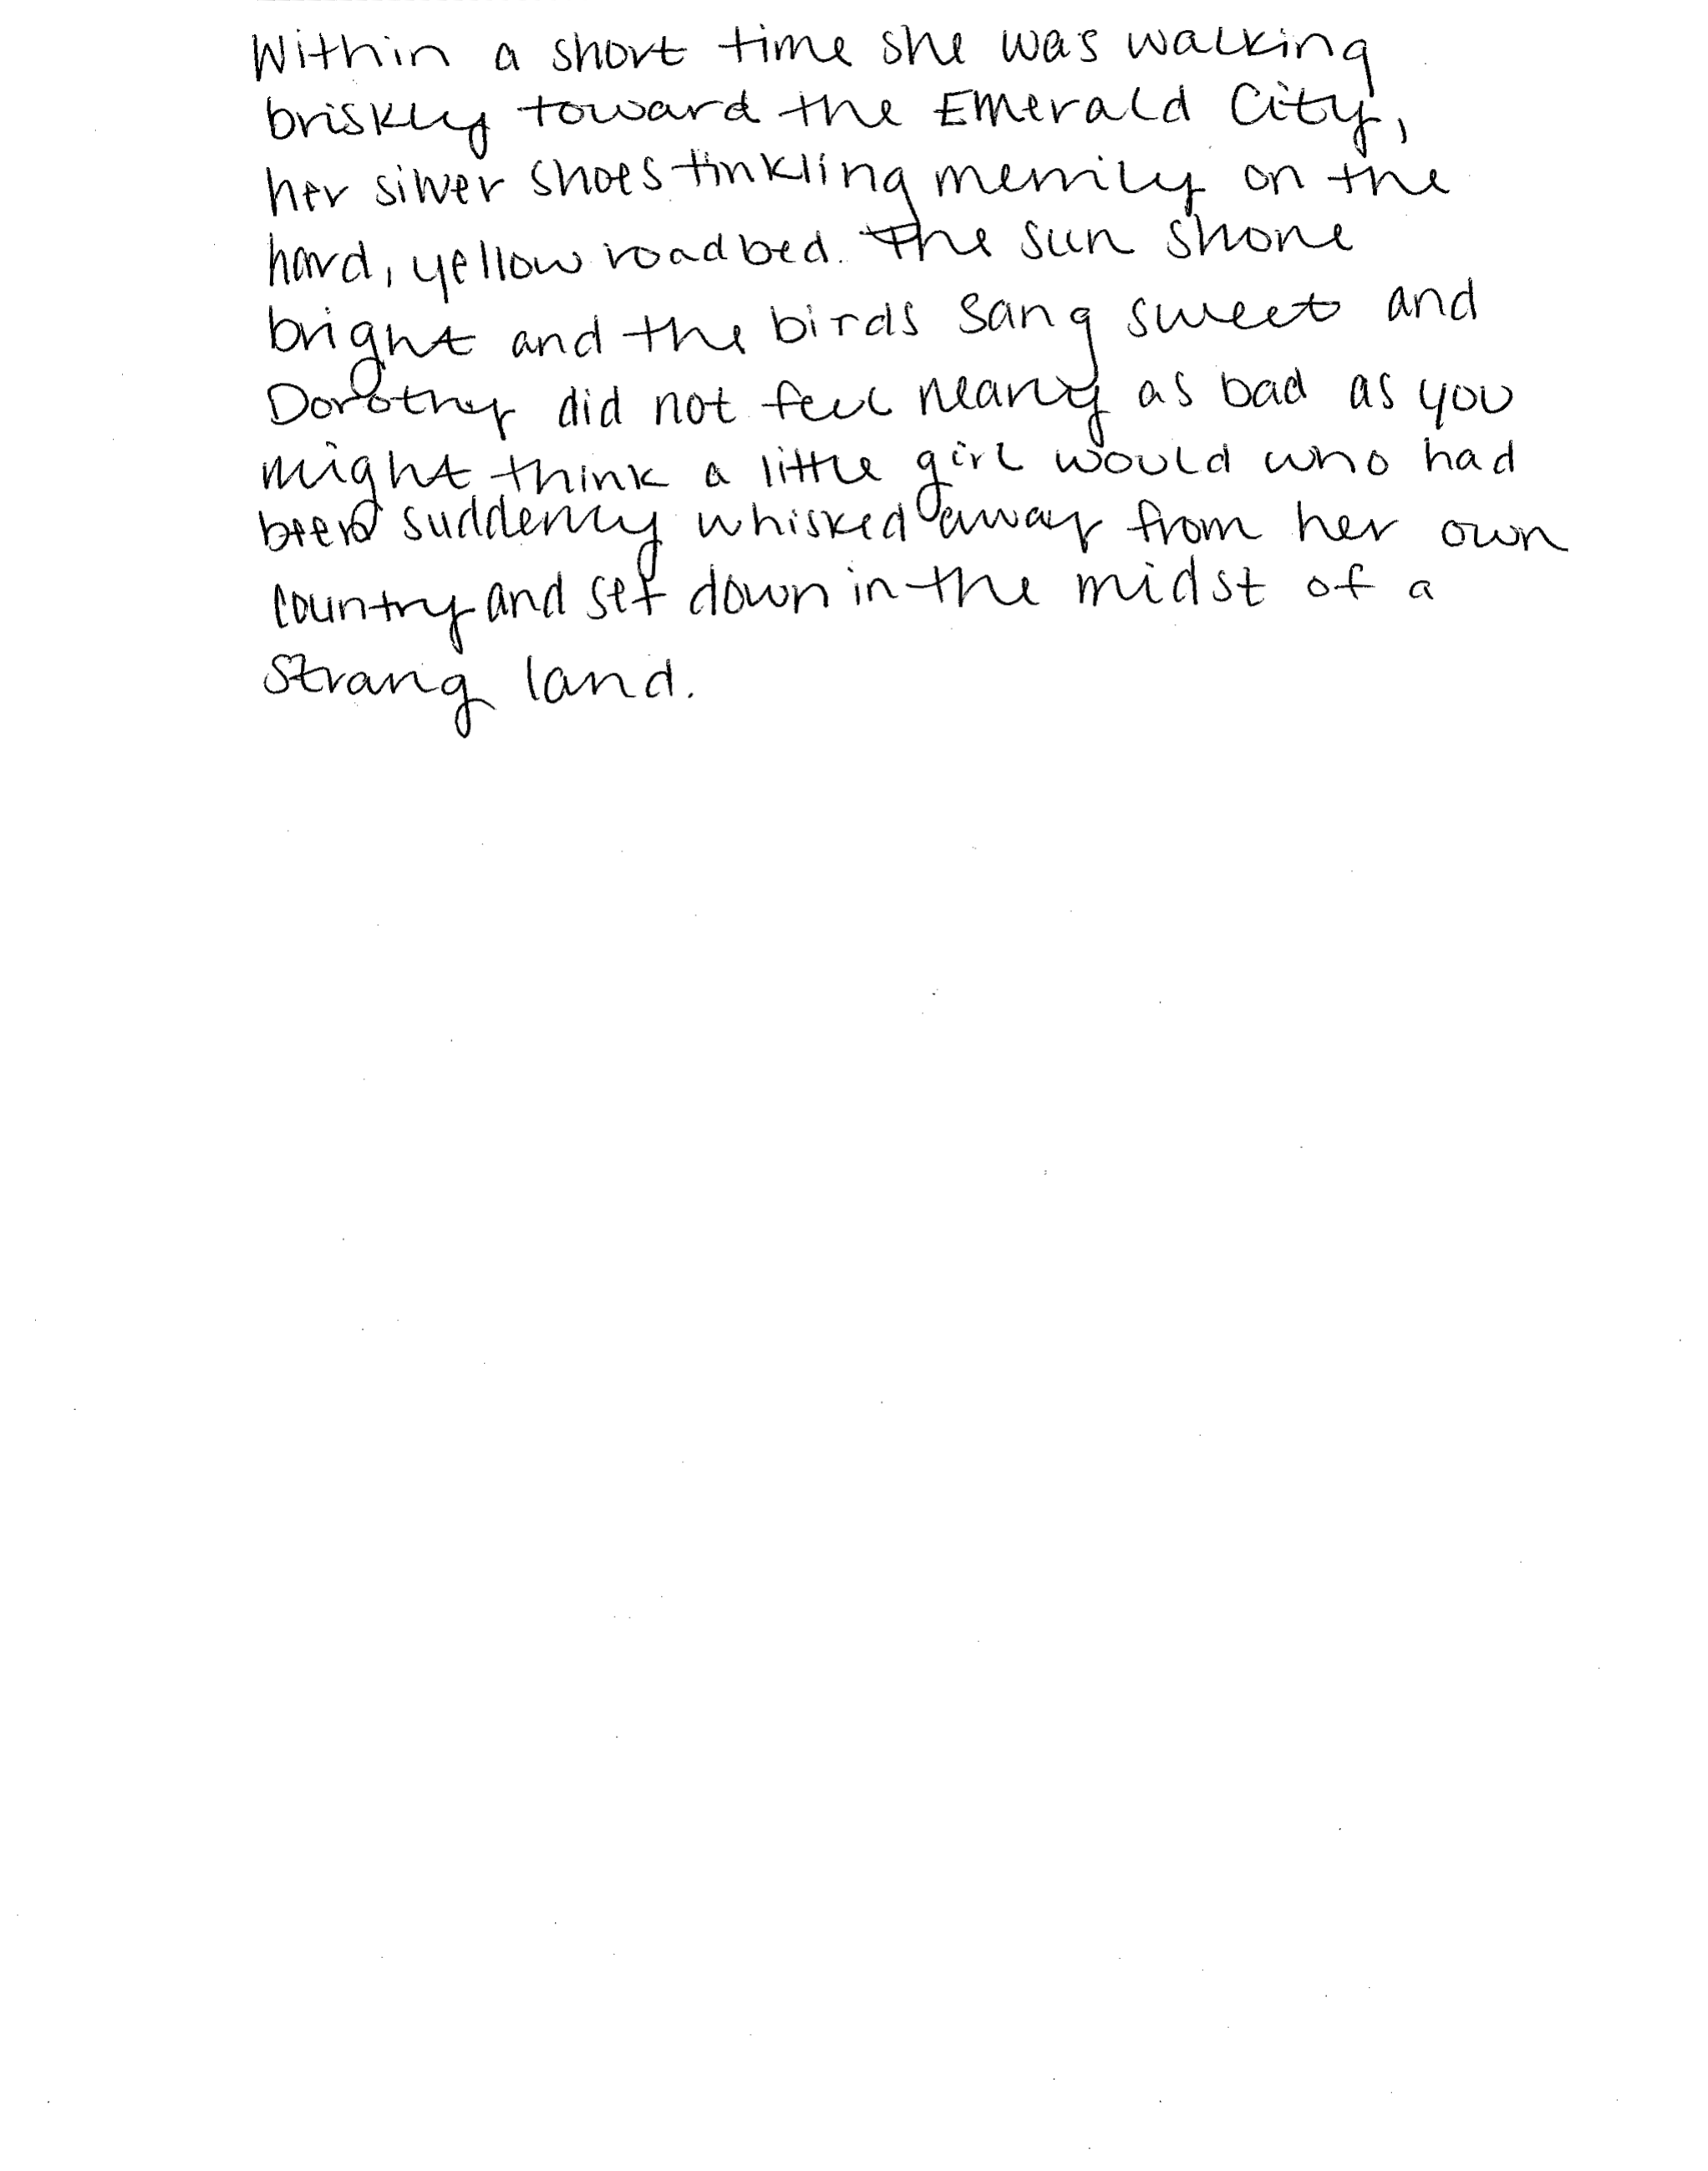 Within a short time she was walking
briskly toward the Emerald City,
her silver shoes tinkling merrily on the
hard, yellow roadbed. The sun shone
bright and the birds sang sweet and
Dorothy did not feel nearly as bad as you
might think a little girl would who had
been suddenly whisked away from her own
country and set down in the midst of a
strang land.